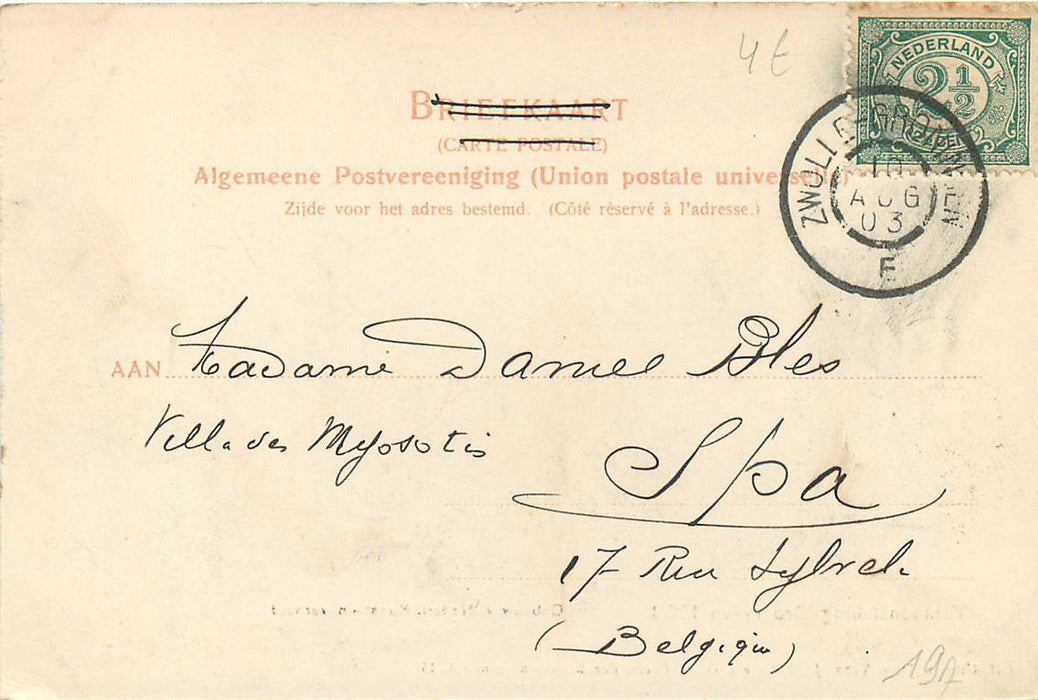 4 E
NEDERLAND
2 1/2
ZWOLLE-GRONINGEN
AUG
03
F
BRIEFKAART
(CARTE POSTALE)
Algemeene Postvereeniging (Union postale universelle)
Zijde voor het adres bestemd. (Côté réservé à l'adresse.)
AAN Madame Daniel Bles
Villa des Myosotis
Spa
17 Rue
(Belgique)